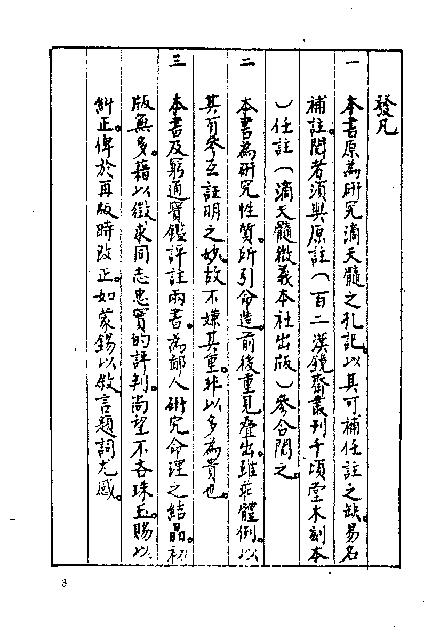 發凡
一 本書原為研究滴天髓之札記。以其可補任註之缺。易名
補註。閱者須與原註(百二漢鏡齋叢刊千頃堂木刻本
)任註(滴天髓徵義本社出版)參合閱之。
二 本書為研究性質。所引命造。前後重見叠出。雖乖體例。以
其有參互証明之妙。故不嫌其重。非以多為貴也。
三 本書及窮通寶鑑評註兩書。為鄙人研究命理之結晶。初
版無多。藉以徵求同志忠實的評判。尚望不吝珠玉。賜以
糾正。俾於再版時改正。如蒙錫以敘言題詞尤感。
8